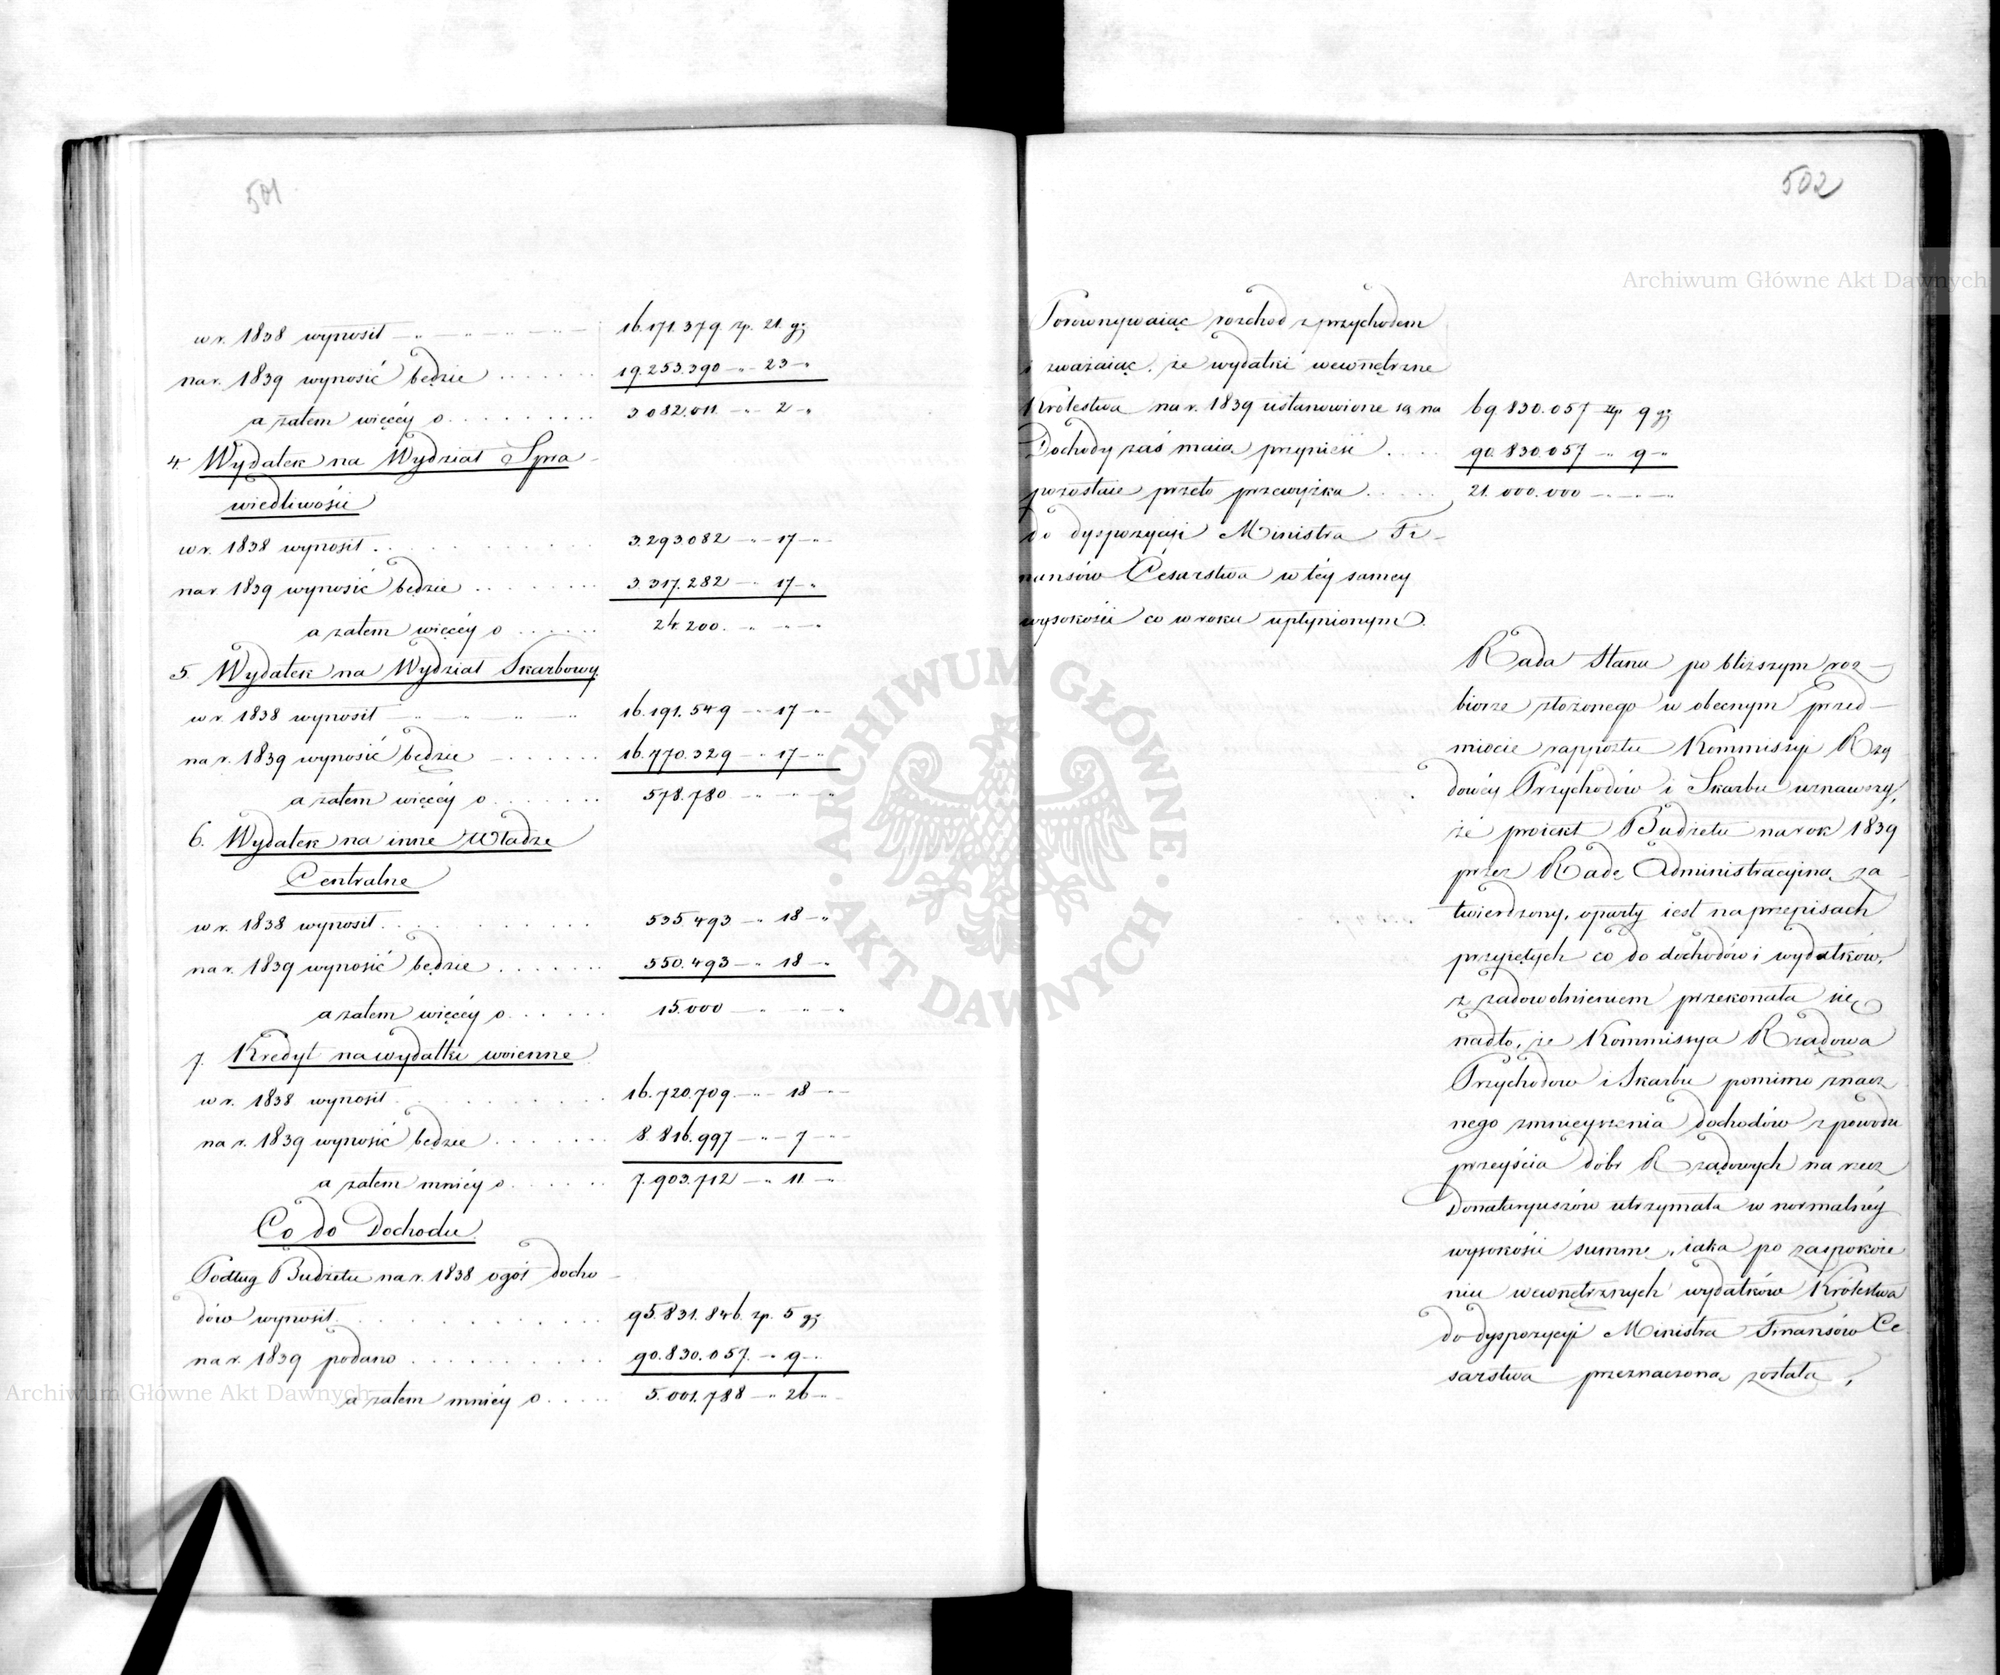 501
w r. 1838 wynosił — „ — „ — „ — 16.171.379. zp. 21. gr
na r. 1839 wynosić będzie . . . . . . 19.253.390 — „ — 23 — „
a zatem więcéy o . . . . . . . . 3.082.011. — „ — 2 — „
4. Wydatek na Wydział Spra-
wiedliwości
w r. 1838 wynosił . . . . . . . . 3.293.082 — „ — 17 — „
na r. 1839 wynosić będzie . . . . . . 3.317.282 — „ — 17 — „
a zatem więcéy o . . . . . . 24.200. — „ — „ — „
5. Wydatek na Wydział Skarbowy.
w r. 1838 wynosił — „ — „ — „ — 16.191.549 — „ — 17 — „
na r. 1839 wynosić będzie — . . . . . 16.770.329 — „ — 17 — „
a zatem więcéy o . . . . . . . 578.780 — „ — „ — „
6. Wydatek na inne Władze
Centralne
w r. 1838 wynosił . . . . . . . . 535.493 — „ — 18 — „
na r. 1839 wynosić będzie . . . . . . 550.493 — „ — 18 — „
a zatem więcéy o . . . . . . 15.000 — „ — „ — „
7. Kredyt na wydatki woienne
w r. 1838 wynosił . . . . . . . . 16.720.709. — „ — 18 — „
na r. 1839 wynosić będzie . . . . . . 8.816.997 — „ — 7 — „
a zatem mniéy o . . . . . . 7.903.712 — „ — 11 — „
Co do Dochodu
Podług Budżetu na r. 1838 ogół docho-
dów wynosił . . . . . . . . . . 95.831.846. zp. 5 gr
na r. 1839 podano . . . . . . . . 90.830.057. — „ 9 — „
a zatem mniéy o . . . . . 5.001.788 — „ — 26 — „
502
Porównywaiąc rozchod z przychodem
i zważaiąc, że wydatki wewnętrzne
Królestwa na r. 1839 ustanowione są na 69.830.057 zp. 9 gr
Dochody zaś maią przynieść . . . . 90.830.057 — „ 9 — „
pozostaie przeto przewyżka . . . . . 21.000.000 — „ — „
do dyspozycyi Ministra Fi-
nansów Césarstwa w téy saméy
wysokości co w roku upłynionym.
Rada Stanu po bliższym roz-
biorze złożonego w obecnym przed-
miocie rapportu Kommissyi Rzą
dowéy Przychodów i Skarbu uznawszy,
że proiekt Budżetu na rok 1839
przez Radę Administracyiną za
twierdzony, oparty iest na przepisach
przyiętych co do dochodów i wydatków,
z zadowolnieniem przekonała się
nadto, że Kommissya Rządowa
Przychodów i Skarbu pomimo znacz
nego zmnieyszenia dochodów z powodu
przeyścia dóbr Rządowych na rzecz
Donataryuszów utrzymała w normalnéy
wysokości summę, iaka po zaspokoie
niu wewnętrznych wydatków Królestwa
do dyspozycyi Ministra Finansów Ce
sarstwa przeznaczoną została,
ARCHIWUM GŁÓWNE · AKT DAWNYCH ·
Archiwum Główne Akt Dawnych
Archiwum Główne Akt Dawnych